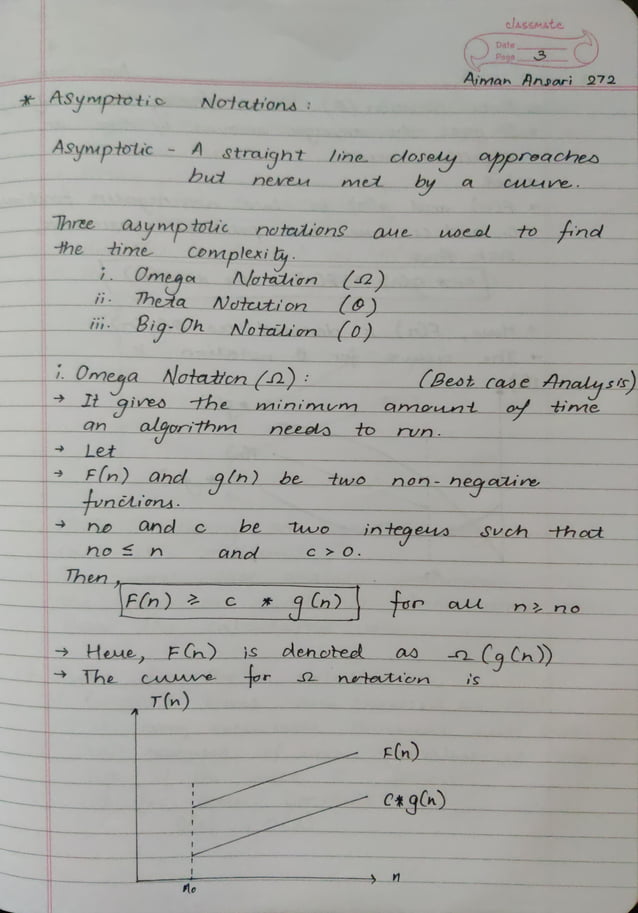 classmate
Date
Page 3
Aiman Ansari 272
* Asymptotic Notations :
Asymptotic - A straight line closely approaches
but never met by a curve.
Three asymptotic notations are used to find
the time complexity.
i. Omega Notation (Ω)
ii. Theta Notation (θ)
iii. Big-Oh Notation (O)
i. Omega Notation (Ω) : (Best case Analysis)
→ It gives the minimum amount of time
an algorithm needs to run.
→ Let
→ F(n) and g(n) be two non-negative
functions.
→ no and c be two integers such that
no ≤ n and c > 0.
Then,
F(n) ≥ c * g(n) for all n ≥ no
→ Here, F(n) is denoted as Ω (g(n))
→ The curve for Ω notation is
T(n)
F(n)
C*g(n)
n
no